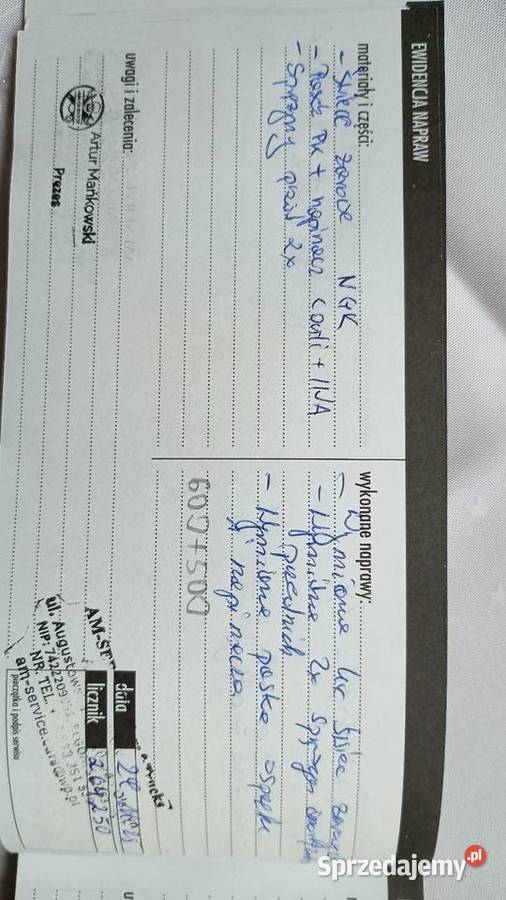 EWIDENCJA NAPRAW
materiały i części:
- Świece żarowe NGK
- Pasek PK + napinacz Conti + INA
- Sprężyny przód 2x
uwagi i zalecenia:
Artur Mańkowski
Prezes
wykonane naprawy:
- Wymiana świec
- Wymiana 2x sprężyn
przednich
- Wymiana paska osprzętu
i napinacza
600+500
data
licznik 264250
ul. Augustows
NIP: 7422209
NR. TEL.
am-service.
@wp.pl
pieczątka i podpis serwisu
Sprzedajemy.pl